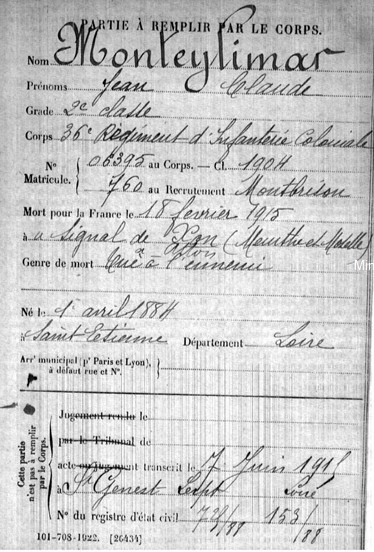 PARTIE À REMPLIR PAR LE CORPS.
Nom Monteylimar
Prénoms Jean Claude
Grade 2e classe
Corps 36e Régiment d'Infanterie Coloniale
N° Matricule. { 06395 au Corps. — Cl. 1904
760 au Recrutement Montbrison
Mort pour la France le 18 février 1915
à Signal de Xon (Meurthe et Moselle)
Genre de mort Tué à l'ennemi
Né le 1er avril 1884
à Saint Etienne Département Loire
Arrt municipal (pr Paris et Lyon),
à défaut rue et N°.
Cette partie n'est pas à remplir par le Corps.
Jugement rendu le
par le Tribunal de
acte ou jugement transcrit le 7 Juin 1915
à St Genest Lerpt Loire
N° du registre d'état civil 153/88
101-708-1922. [26434]